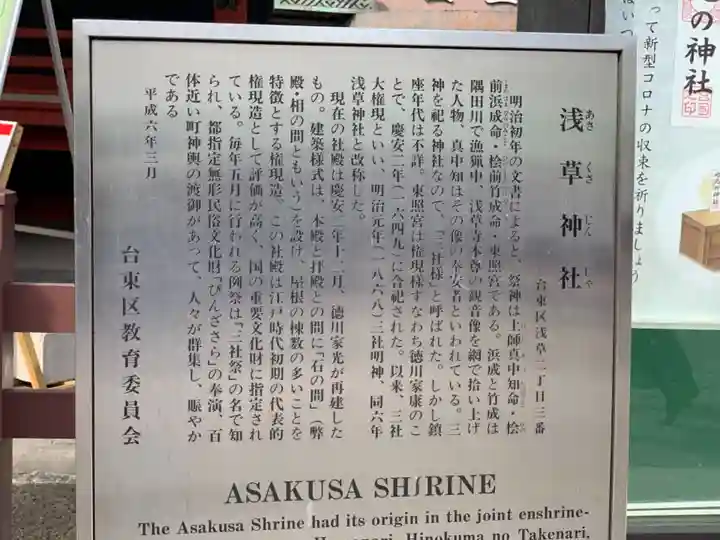 浅草神社
あさくさじんしゃ
台東区浅草二丁目三番
明治初年の文書によると、祭神は土師真中知命・桧
前浜成命・桧前竹成命・東照宮である。浜成と竹成は
隅田川で漁猟中、浅草寺本尊の観音像を網で拾い上げ
た人物、真中知はその像の奉安者といわれている。三
神を祀る神社なので、「三社様」と呼ばれた。しかし鎮
座年代は不詳。東照宮は権現様すなわち徳川家康のこ
とで、慶安二年(一六四九)に合祀された。以来、三社
大権現といい、明治元年(一八六八)三社明神、同六年
浅草神社と改称した。
現在の社殿は慶安二年十二月、徳川家光が再建した
もの。建築様式は、本殿と拝殿との間に「石の間」(弊
殿・相の間ともいう)を設け、屋根の棟数の多いことを
特徴とする権現造。この社殿は江戸時代初期の代表的
権現造として評価が高く、国の重要文化財に指定され
ている。毎年五月に行われる例祭は「三社祭」の名で知
られ、都指定無形民俗文化財「びんざさら」の奉演、百
体近い町神輿の渡御があって、人々が群集し、賑やか
である
平成六年三月
台東区教育委員会
ASAKUSA SHRINE
The Asakusa Shrine had its origin in the joint enshrine-
Hinokuma no Takenari,
の神社
って新型コロナの収束を祈りましょう